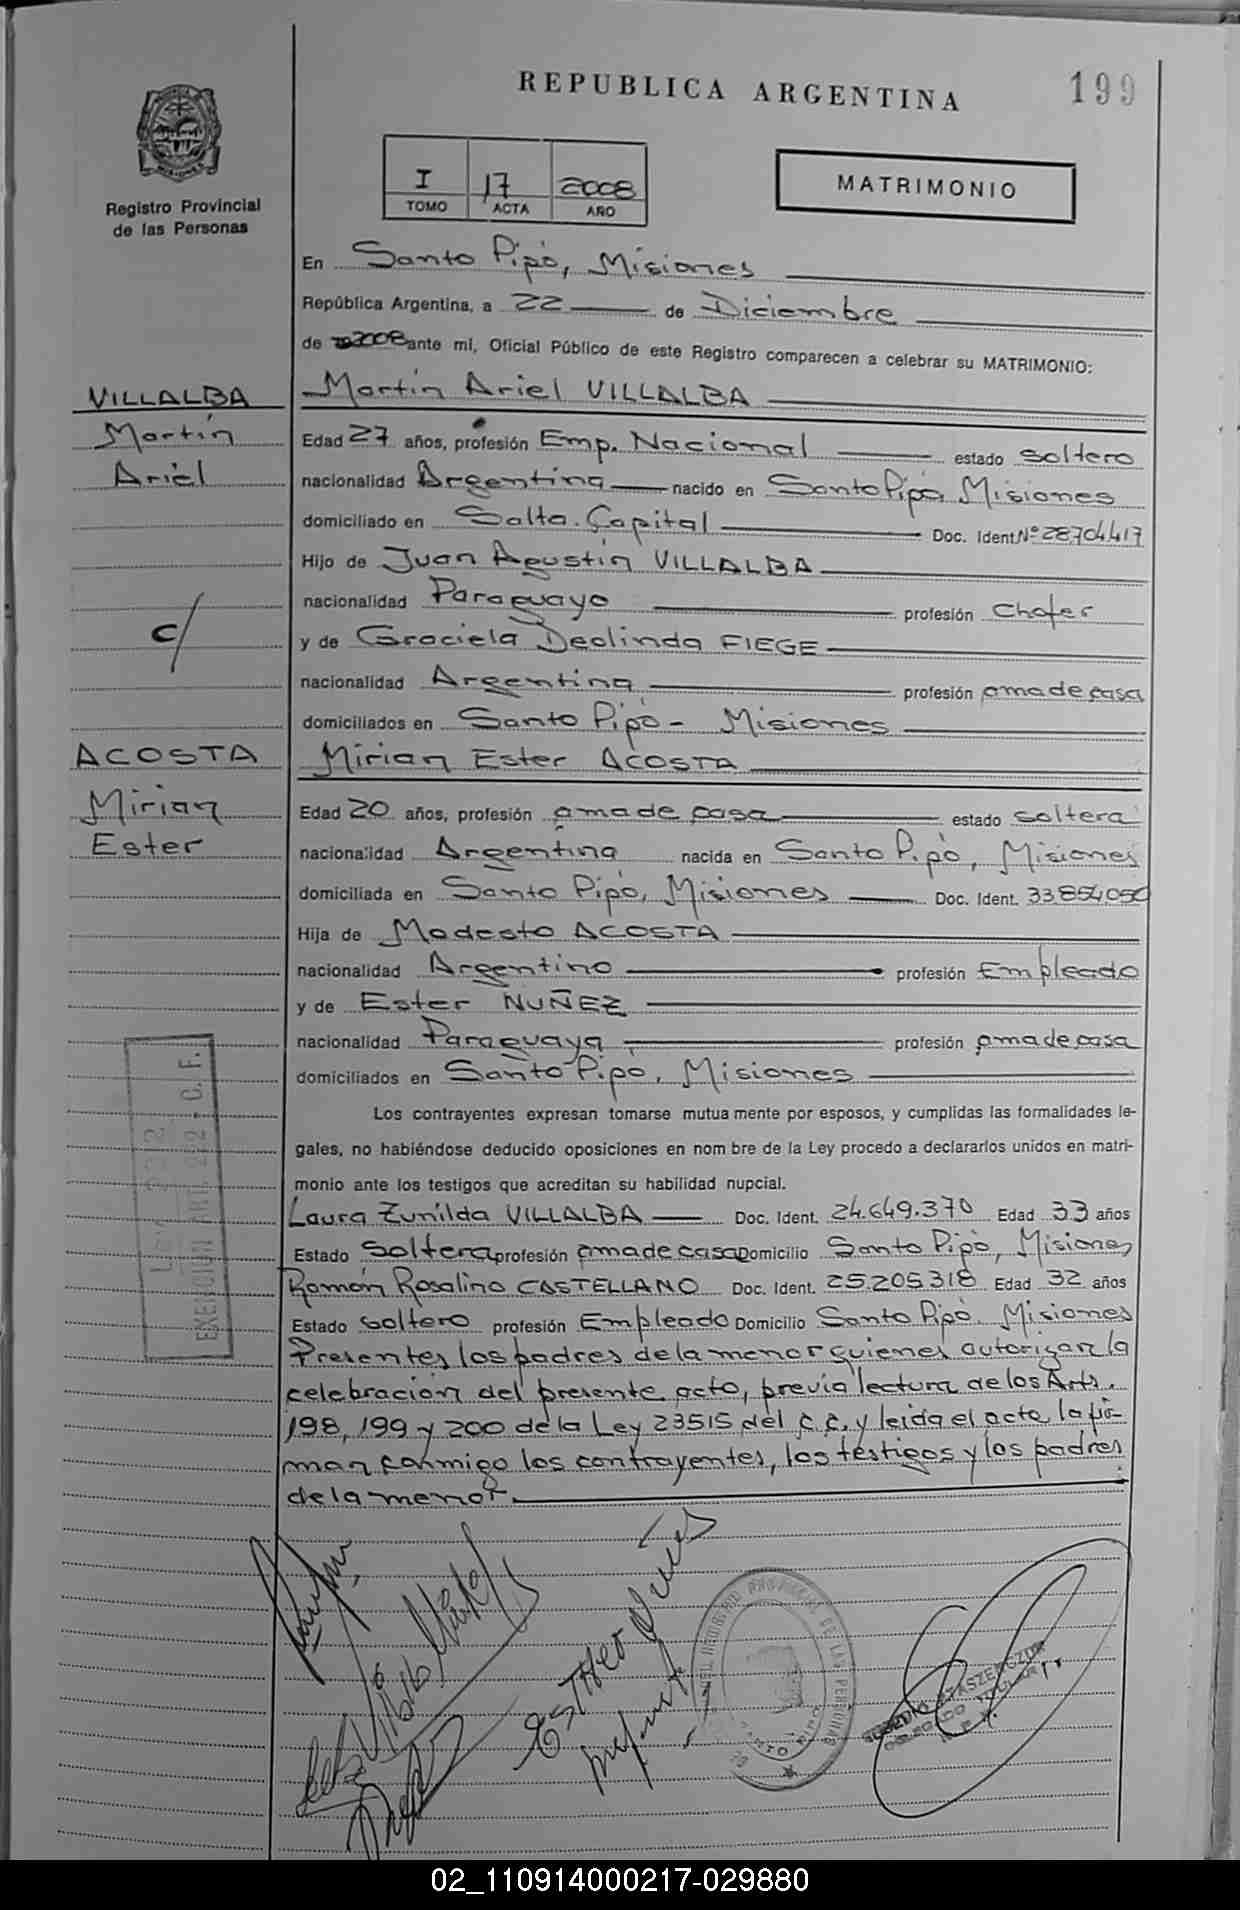 REPUBLICA ARGENTINA
199
Registro Provincial
de las Personas
I 17 2008
TOMO ACTA AÑO
MATRIMONIO
En Santo Pipó, Misiones
República Argentina, a 22 de Diciembre
de 2008 ante mí, Oficial Público de este Registro comparecen a celebrar su MATRIMONIO:
VILLALBA
Martín
Ariel
c/
ACOSTA
Mirian
Ester
Martín Ariel VILLALBA
Edad 27 años, profesión Emp. Nacional estado soltero
nacionalidad Argentina nacido en Santo Pipó, Misiones
domiciliado en Salta. Capital Doc. Ident. Nº 28704417
Hijo de Juan Agustín VILLALBA
nacionalidad Paraguayo profesión Chofer
y de Graciela Deolinda FIEGE
nacionalidad Argentina profesión ama de casa
domiciliados en Santo Pipó - Misiones
Mirian Ester ACOSTA
Edad 20 años, profesión ama de casa estado soltera
nacionalidad Argentina nacida en Santo Pipó, Misiones
domiciliada en Santo Pipó, Misiones Doc. Ident. 33.854.050
Hija de Modesto ACOSTA
nacionalidad Argentino profesión Empleado
y de Ester NUÑEZ
nacionalidad Paraguaya profesión ama de casa
domiciliados en Santo Pipo, Misiones
Los contrayentes expresan tomarse mutua mente por esposos, y cumplidas las formalidades le-
gales, no habiéndose deducido oposiciones en nom bre de la Ley procedo a declararlos unidos en matri-
monio ante los testigos que acreditan su habilidad nupcial.
Laura Zunilda VILLALBA Doc. Ident. 24.649.370 Edad 33 años
Estado Soltera profesión ama de casa Domicilio Santo Pipó, Misiones
Ramón Rosalino CASTELLANO Doc. Ident. 25.205.318 Edad 32 años
Estado soltero profesión Empleado Domicilio Santo Pipó, Misiones
Presentes los padres de la menor quienes autorizan la
celebración del presente acto, previa lectura de los Arts.
198, 199 y 200 de la Ley 23515 del C.C. y leida el acta, la fir-
man conmigo los contrayentes, los testigos y los padres
de la menor.
DELEGADO TITULAR
02_110914000217-029880